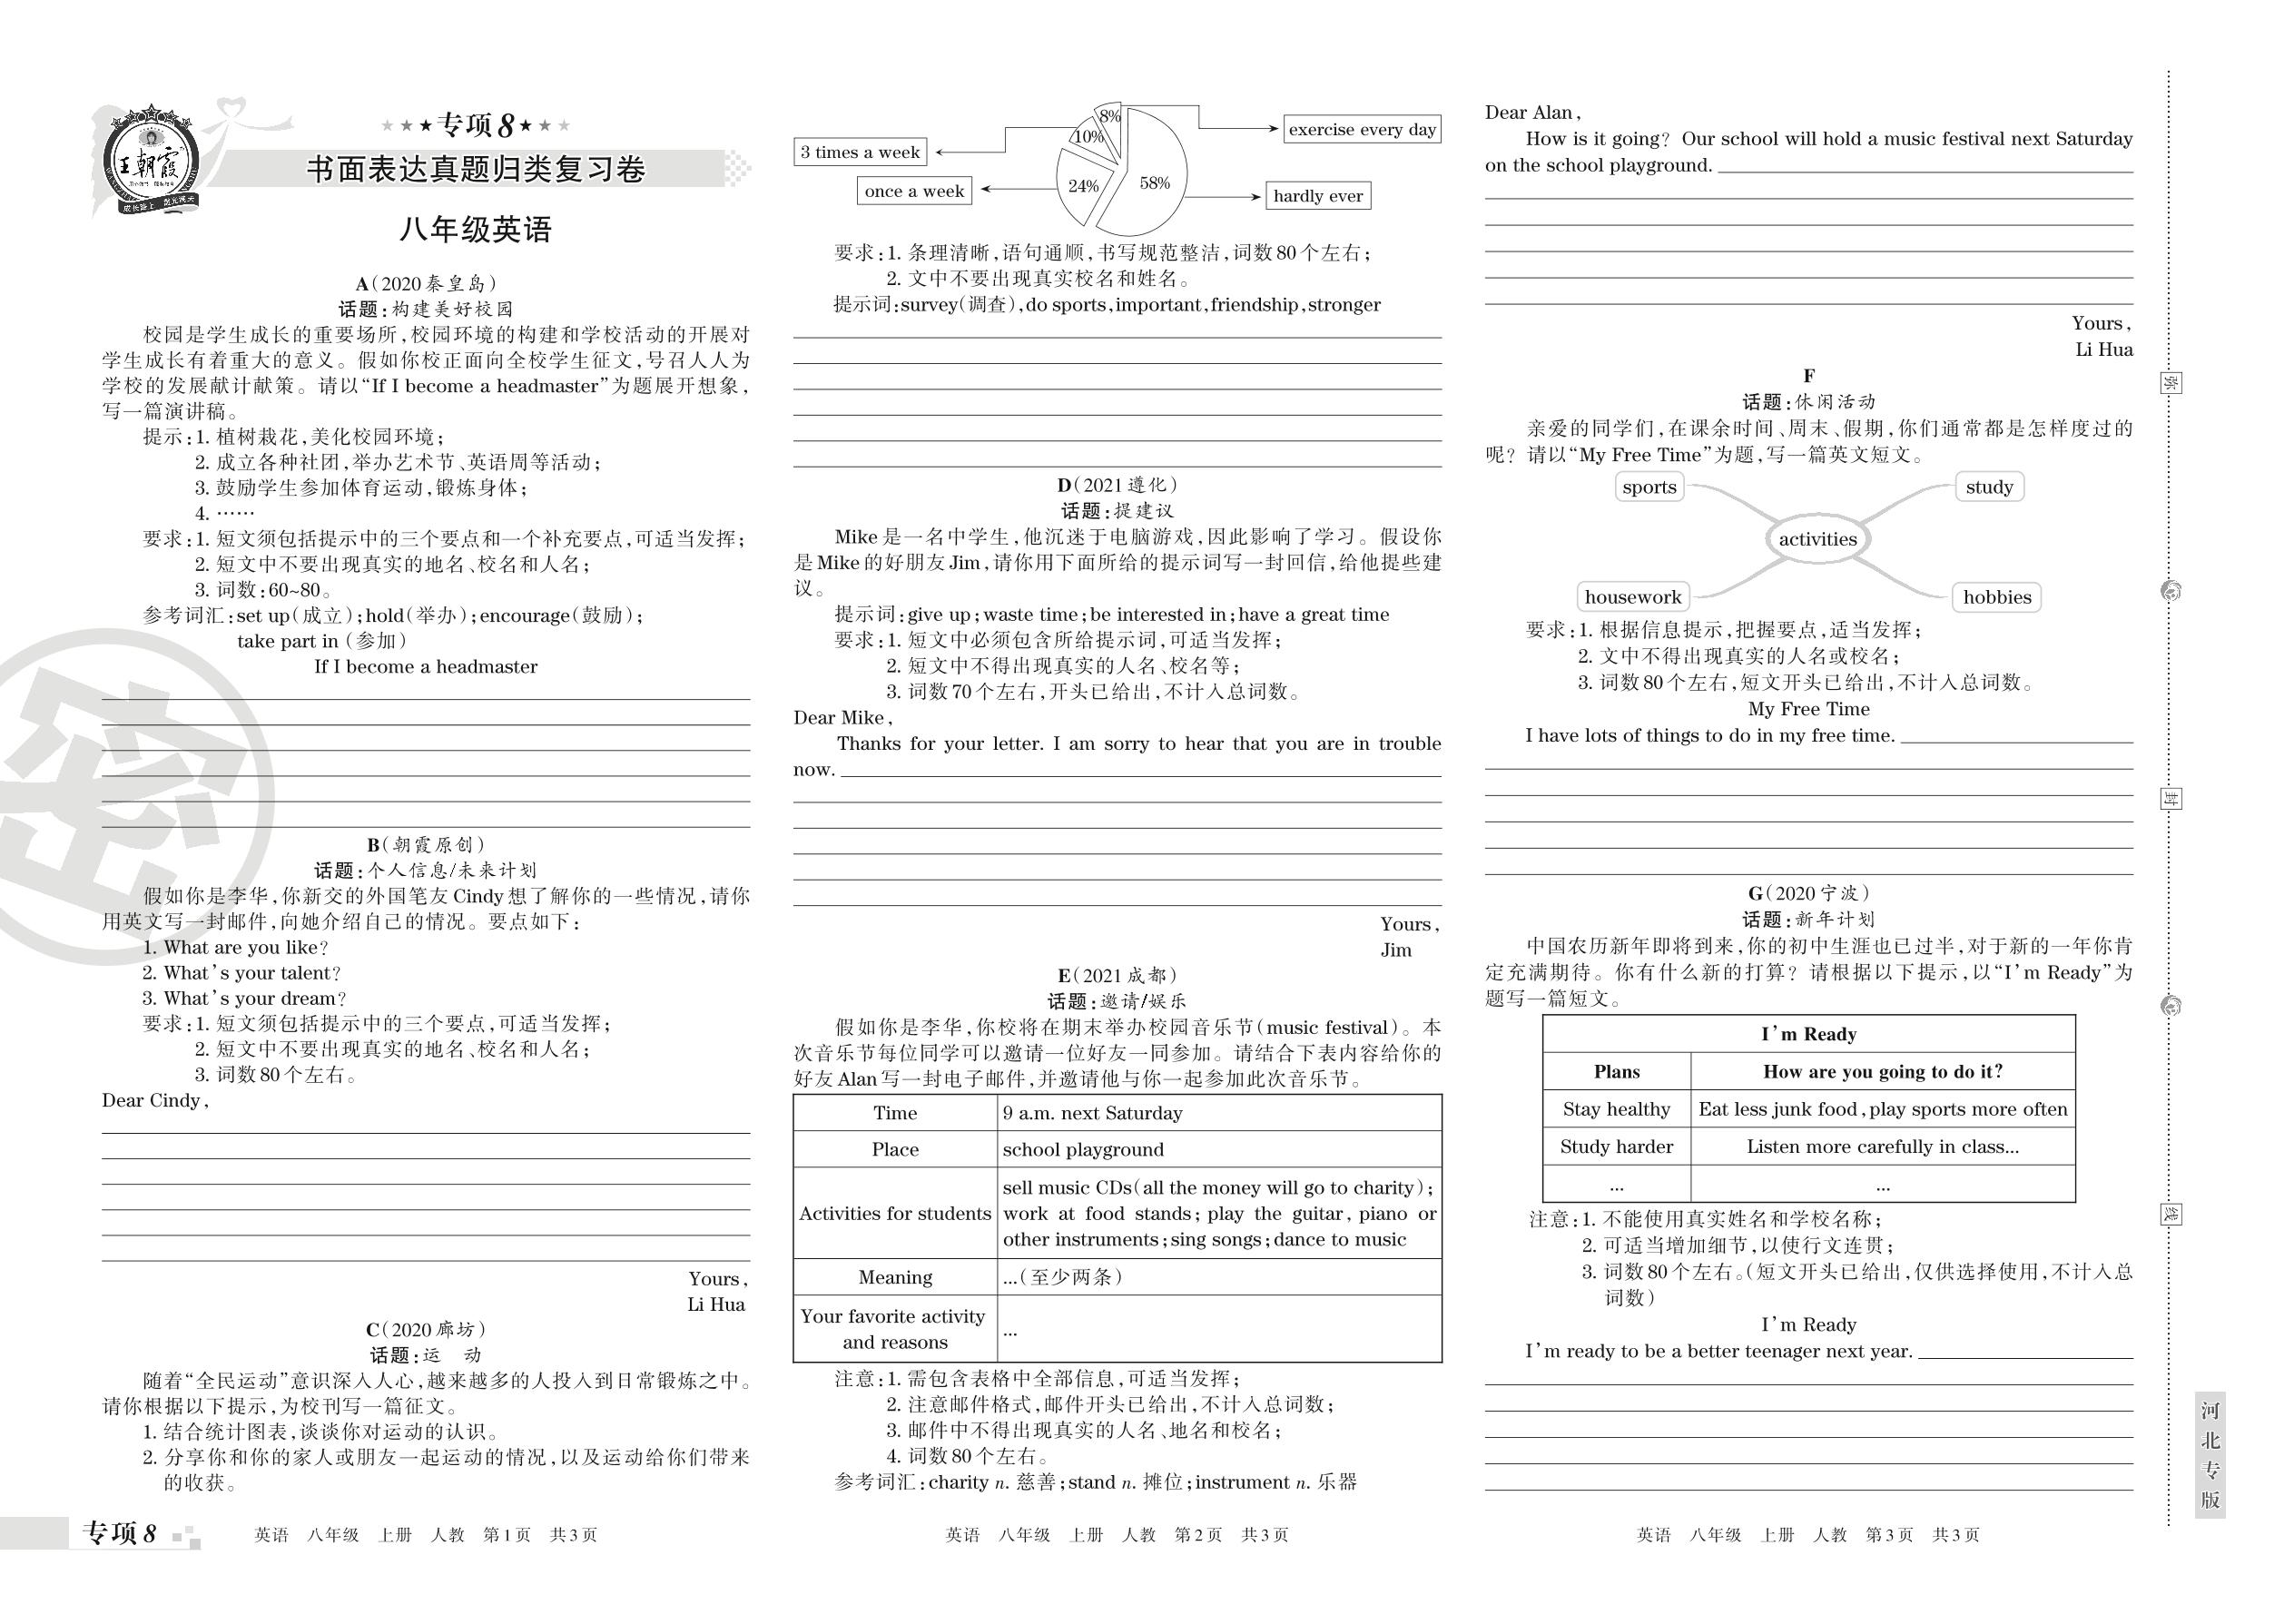 专项8
书面表达真题归类复习卷
八年级英语
王朝霞
A(2020秦皇岛)
话题:构建美好校园
校园是学生成长的重要场所,校园环境的构建和学校活动的开展对
学生成长有着重大的意义。假如你校正面向全校学生征文,号召人人为
学校的发展献计献策。请以“If I become a headmaster”为题展开想象,
写一篇演讲稿。
提示:1. 植树栽花,美化校园环境;
2. 成立各种社团,举办艺术节、英语周等活动;
3. 鼓励学生参加体育运动,锻炼身体;
4. ……
要求:1. 短文须包括提示中的三个要点和一个补充要点,可适当发挥;
2. 短文中不要出现真实的地名、校名和人名;
3. 词数:60~80。
参考词汇:set up(成立);hold(举办);encourage(鼓励);
take part in (参加)
If I become a headmaster
密
B(朝霞原创)
话题:个人信息/未来计划
假如你是李华,你新交的外国笔友Cindy想了解你的一些情况,请你
用英文写一封邮件,向她介绍自己的情况。要点如下:
1. What are you like?
2. What's your talent?
3. What's your dream?
要求:1. 短文须包括提示中的三个要点,可适当发挥;
2. 短文中不要出现真实的地名、校名和人名;
3. 词数80个左右。
Dear Cindy,
Yours,
Li Hua
C(2020廊坊)
话题:运 动
随着“全民运动”意识深入人心,越来越多的人投入到日常锻炼之中。
请你根据以下提示,为校刊写一篇征文。
1. 结合统计图表,谈谈你对运动的认识。
2. 分享你和你的家人或朋友一起运动的情况,以及运动给你们带来
的收获。
专项8
英语 八年级 上册 人教 第1页 共3页
8%
10%
24%
58%
exercise every day
3 times a week
once a week
hardly ever
要求:1. 条理清晰,语句通顺,书写规范整洁,词数80个左右;
2. 文中不要出现真实校名和姓名。
提示词:survey(调查),do sports,important,friendship,stronger
D(2021遵化)
话题:提建议
Mike是一名中学生,他沉迷于电脑游戏,因此影响了学习。假设你
是Mike的好朋友Jim,请你用下面所给的提示词写一封回信,给他提些建
议。
提示词:give up;waste time;be interested in;have a great time
要求:1. 短文中必须包含所给提示词,可适当发挥;
2. 短文中不得出现真实的人名、校名等;
3. 词数70个左右,开头已给出,不计入总词数。
Dear Mike,
Thanks for your letter. I am sorry to hear that you are in trouble
now.
Yours,
Jim
E(2021成都)
话题:邀请/娱乐
假如你是李华,你校将在期末举办校园音乐节(music festival)。本
次音乐节每位同学可以邀请一位好友一同参加。请结合下表内容给你的
好友Alan写一封电子邮件,并邀请他与你一起参加此次音乐节。
Time 9 a.m. next Saturday
Place school playground
Activities for students sell music CDs(all the money will go to charity);
work at food stands; play the guitar, piano or
other instruments;sing songs;dance to music
Meaning ...(至少两条)
Your favorite activity
and reasons ...
注意:1. 需包含表格中全部信息,可适当发挥;
2. 注意邮件格式,邮件开头已给出,不计入总词数;
3. 邮件中不得出现真实的人名、地名和校名;
4. 词数80个左右。
参考词汇:charity n. 慈善;stand n. 摊位;instrument n. 乐器
英语 八年级 上册 人教 第2页 共3页
Dear Alan,
How is it going? Our school will hold a music festival next Saturday
on the school playground.
Yours,
Li Hua
F
话题:休闲活动
亲爱的同学们,在课余时间、周末、假期,你们通常都是怎样度过的
呢?请以“My Free Time”为题,写一篇英文短文。
sports
study
activities
housework
hobbies
要求:1. 根据信息提示,把握要点,适当发挥;
2. 文中不得出现真实的人名或校名;
3. 词数80个左右,短文开头已给出,不计入总词数。
My Free Time
I have lots of things to do in my free time.
G(2020宁波)
话题:新年计划
中国农历新年即将到来,你的初中生涯也已过半,对于新的一年你肯
定充满期待。你有什么新的打算?请根据以下提示,以“I'm Ready”为
题写一篇短文。
I'm Ready
Plans How are you going to do it?
Stay healthy Eat less junk food,play sports more often
Study harder Listen more carefully in class...
... ...
注意:1. 不能使用真实姓名和学校名称;
2. 可适当增加细节,以使行文连贯;
3. 词数80个左右。(短文开头已给出,仅供选择使用,不计入总
词数)
I'm Ready
I'm ready to be a better teenager next year.
英语 八年级 上册 人教 第3页 共3页
弥
封
线
河北专版